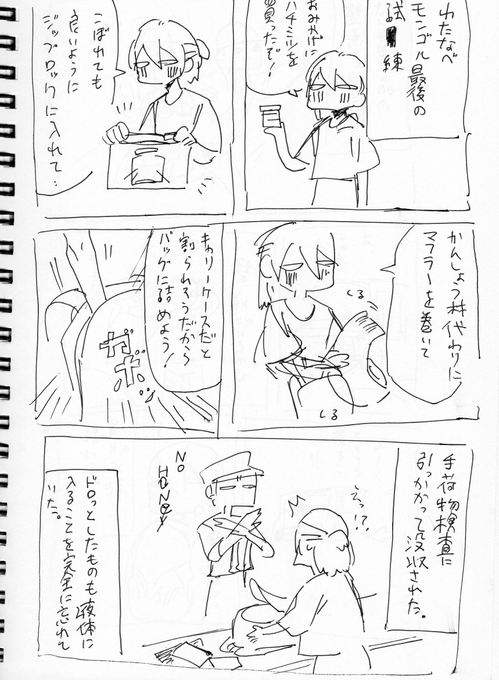 わたなべ
モンゴル最後の
試練
おみやげに
ハチミツを
買ったぞ!
こぼれても
良いように
ジップロックに入れて…
かんしょう材代わりに
マフラーを巻いて
くる
くる
キャリーケースだと
割られそうだから
バッグに詰めよう!
ガボッ
手荷物検査に
引っかかって没収された。
えっ!?
NO
HONEY
ドロっとしたものも液体に
入ることを完全に忘れて
いた。